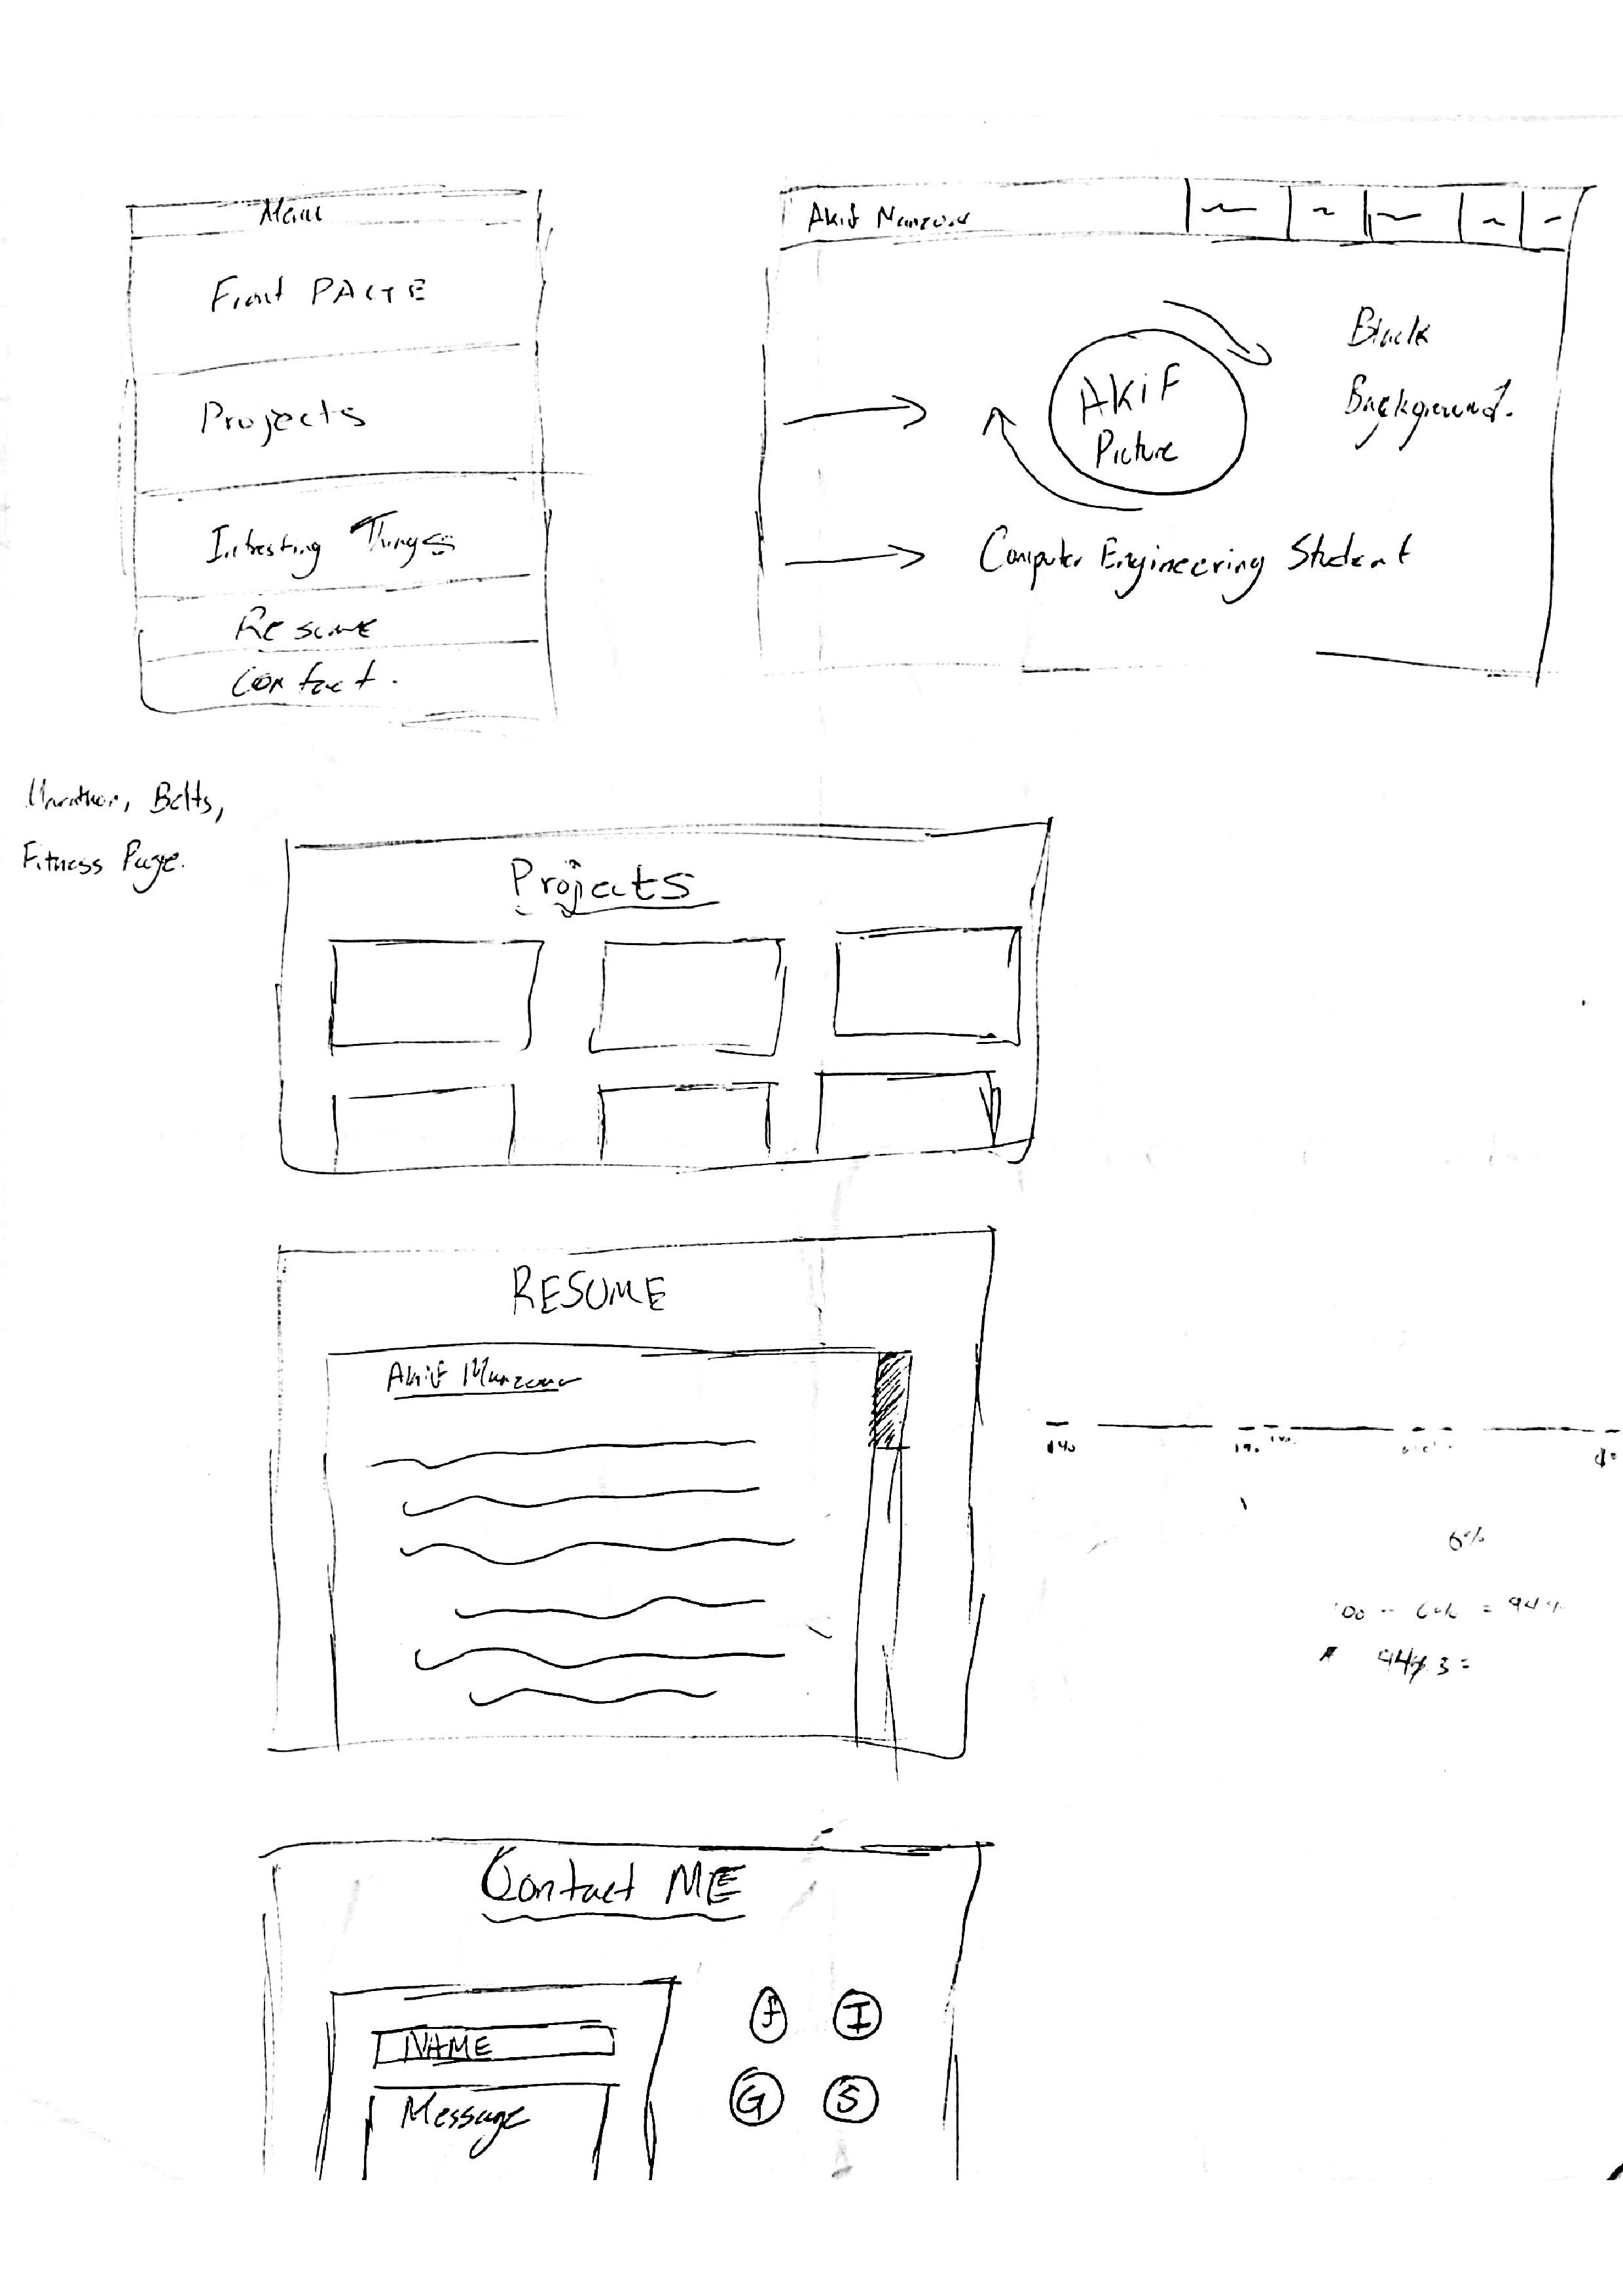 Menu
Front PAGE
Projects
Intresting Things
Resume
Contact.
Akif Manzoor
Black
Background.
AKiF
Picture
Computer Engineering Student
Marathon, Belts,
Fitness Page.
Projects
RESUME
Akif Manzoor
6%
= 94%
Contact ME
NAME
Message
f I
G S